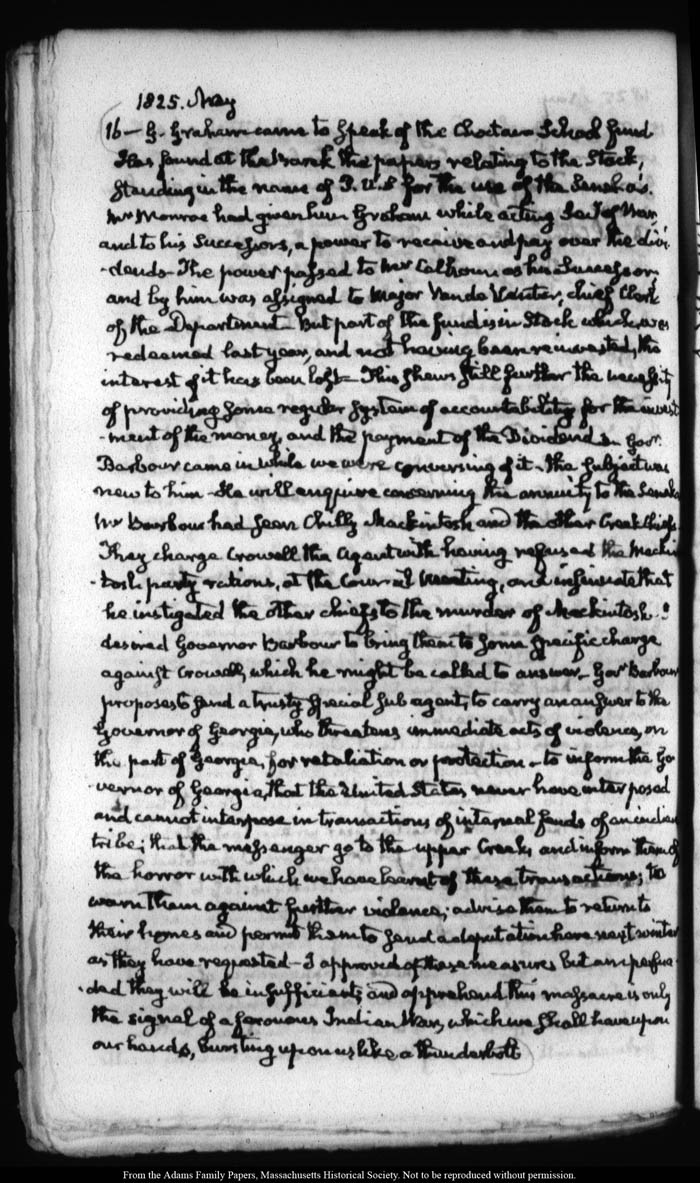 1825. May
16 — G. Graham came to speak of the Choctaw School fund
Has found at the Bank the papers relating to the Stock,
standing in the name of P. U.S for the use of the Senekas.
Mr Monroe had given him Graham while acting Sec.y of War,
and to his Successors, a power to receive and pay over the divi-
-dends. The power passed to Mr Calhoun as his Successor
and by him was assigned to Major Vande Venter, chief Clerk
of the Department. But part of the fund is in Stock which was
redeemed last year, and not having been reinvested, the
interest of it has been lost — This shews still further the necessity
of providing some regular system of accountability for the invest
-ment of the money, and the payment of the Dividends. Govr.
Barbour came in while we were conversing of it. The subject was
new to him. He will enquire concerning the annuity to the Seneka
Mr Barbour had seen Chilly Mackintosh and the other Creek Chiefs.
They charge Crowell the Agent with having refused the Mackin
-tosh party rations, at the Council Meeting, and insinuate that
he instigated the other chiefs to the murder of Mackintosh. I
desired Governor Barbour to bring them to some specific charge
against Crowell, which he might be called to answer. Govr. Barbour
proposes to send a trusty special sub agent, to carry an answer to the
Governor of Georgia, who threatens immediate acts of violence, on
the part of Georgia, for retaliation or protection — to inform the Go
-vernor of Georgia, that the United States never have interposed
and cannot interpose in transactions of internal feuds of an indian
tribe; that the messenger go to the upper Creeks and inform them of
the horror with which we have learnt of these transactions; to
warn them against further violence; advise them to return to
their homes and permit them to send a deputation here next winter
as they have requested — I approved of these measures but am persua-
-ded they will be insufficient; and apprehend this massacre is only
the signal of a ferocious Indian War, which we shall have upon
our hands, bursting upon us like a thunderbolt
From the Adams Family Papers, Massachusetts Historical Society. Not to be reproduced without permission.